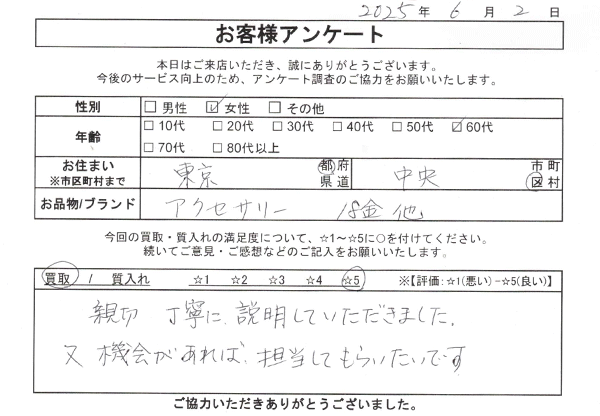 2025年 6月 2日
お客様アンケート
本日はご来店いただき、誠にありがとうございます。
今後のサービス向上のため、アンケート調査のご協力をお願いいたします。
性別 □男性 ☑女性 □その他
年齢 □10代 □20代 □30代 □40代 □50代 ☑60代
□70代 □80代以上
お住まい 東京 都府 中央 市町
※市区町村まで 県道 区村
お品物/ブランド アクセサリー 18金 他
今回の買取・質入れの満足度について、☆1～☆5に○を付けてください。
続いてご意見・ご感想などのご記入をお願いいたします。
買取 / 質入れ ☆1 ☆2 ☆3 ☆4 ☆5 ※【評価:☆1(悪い)-☆5(良い)】
親切 丁寧に、説明していただきました。
又 機会があれば、担当してもらいたいです
ご協力いただきありがとうございました。